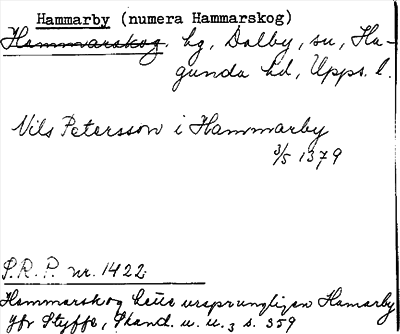 Hammarby (numera Hammarskog)
Hammarskog, hg, Dalby, sn, Ha-
gunda hd, Upps. l.
Nils Petersson i Hammarby
3/5 1379
P.R.P. nr. 1422.
Hammarskog hette ursprungligen Hamarby
jfr Styffe, Skand. u. u.3 s. 359